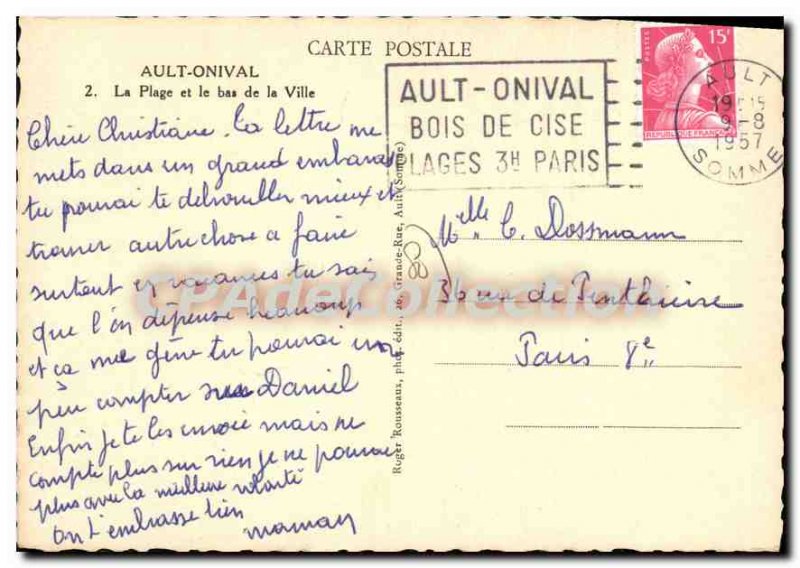 CARTE POSTALE
AULT-ONIVAL
2. La Plage et le bas de la Ville
Chère Christiane. Ta lettre me
mets dans un grand embarras
tu pourai te debrouiller mieux et
trouver autre chose a faire
surtout en vacances tu sais
que l'on dépense beaucoup
et ça me gêne tu pourai un
peu compter sur Daniel
Enfin je te les envoie mais ne
compte plus sur rien je ne pourai
plus avec la meilleure volonté
On t'embrasse bien
maman
Roger Rousseaux, phot. édit., 20, Grande-Rue, Ault (Somme)
AULT-ONIVAL
BOIS DE CISE
PLAGES 3H PARIS
POSTES
15F
REPUBLIQUE FRANÇAISE
AULT
19H15
9-8
1957
SOMME
Melle C. Dossmann
36 rue de Penthièvre
Paris 8e
CPAdeCollection